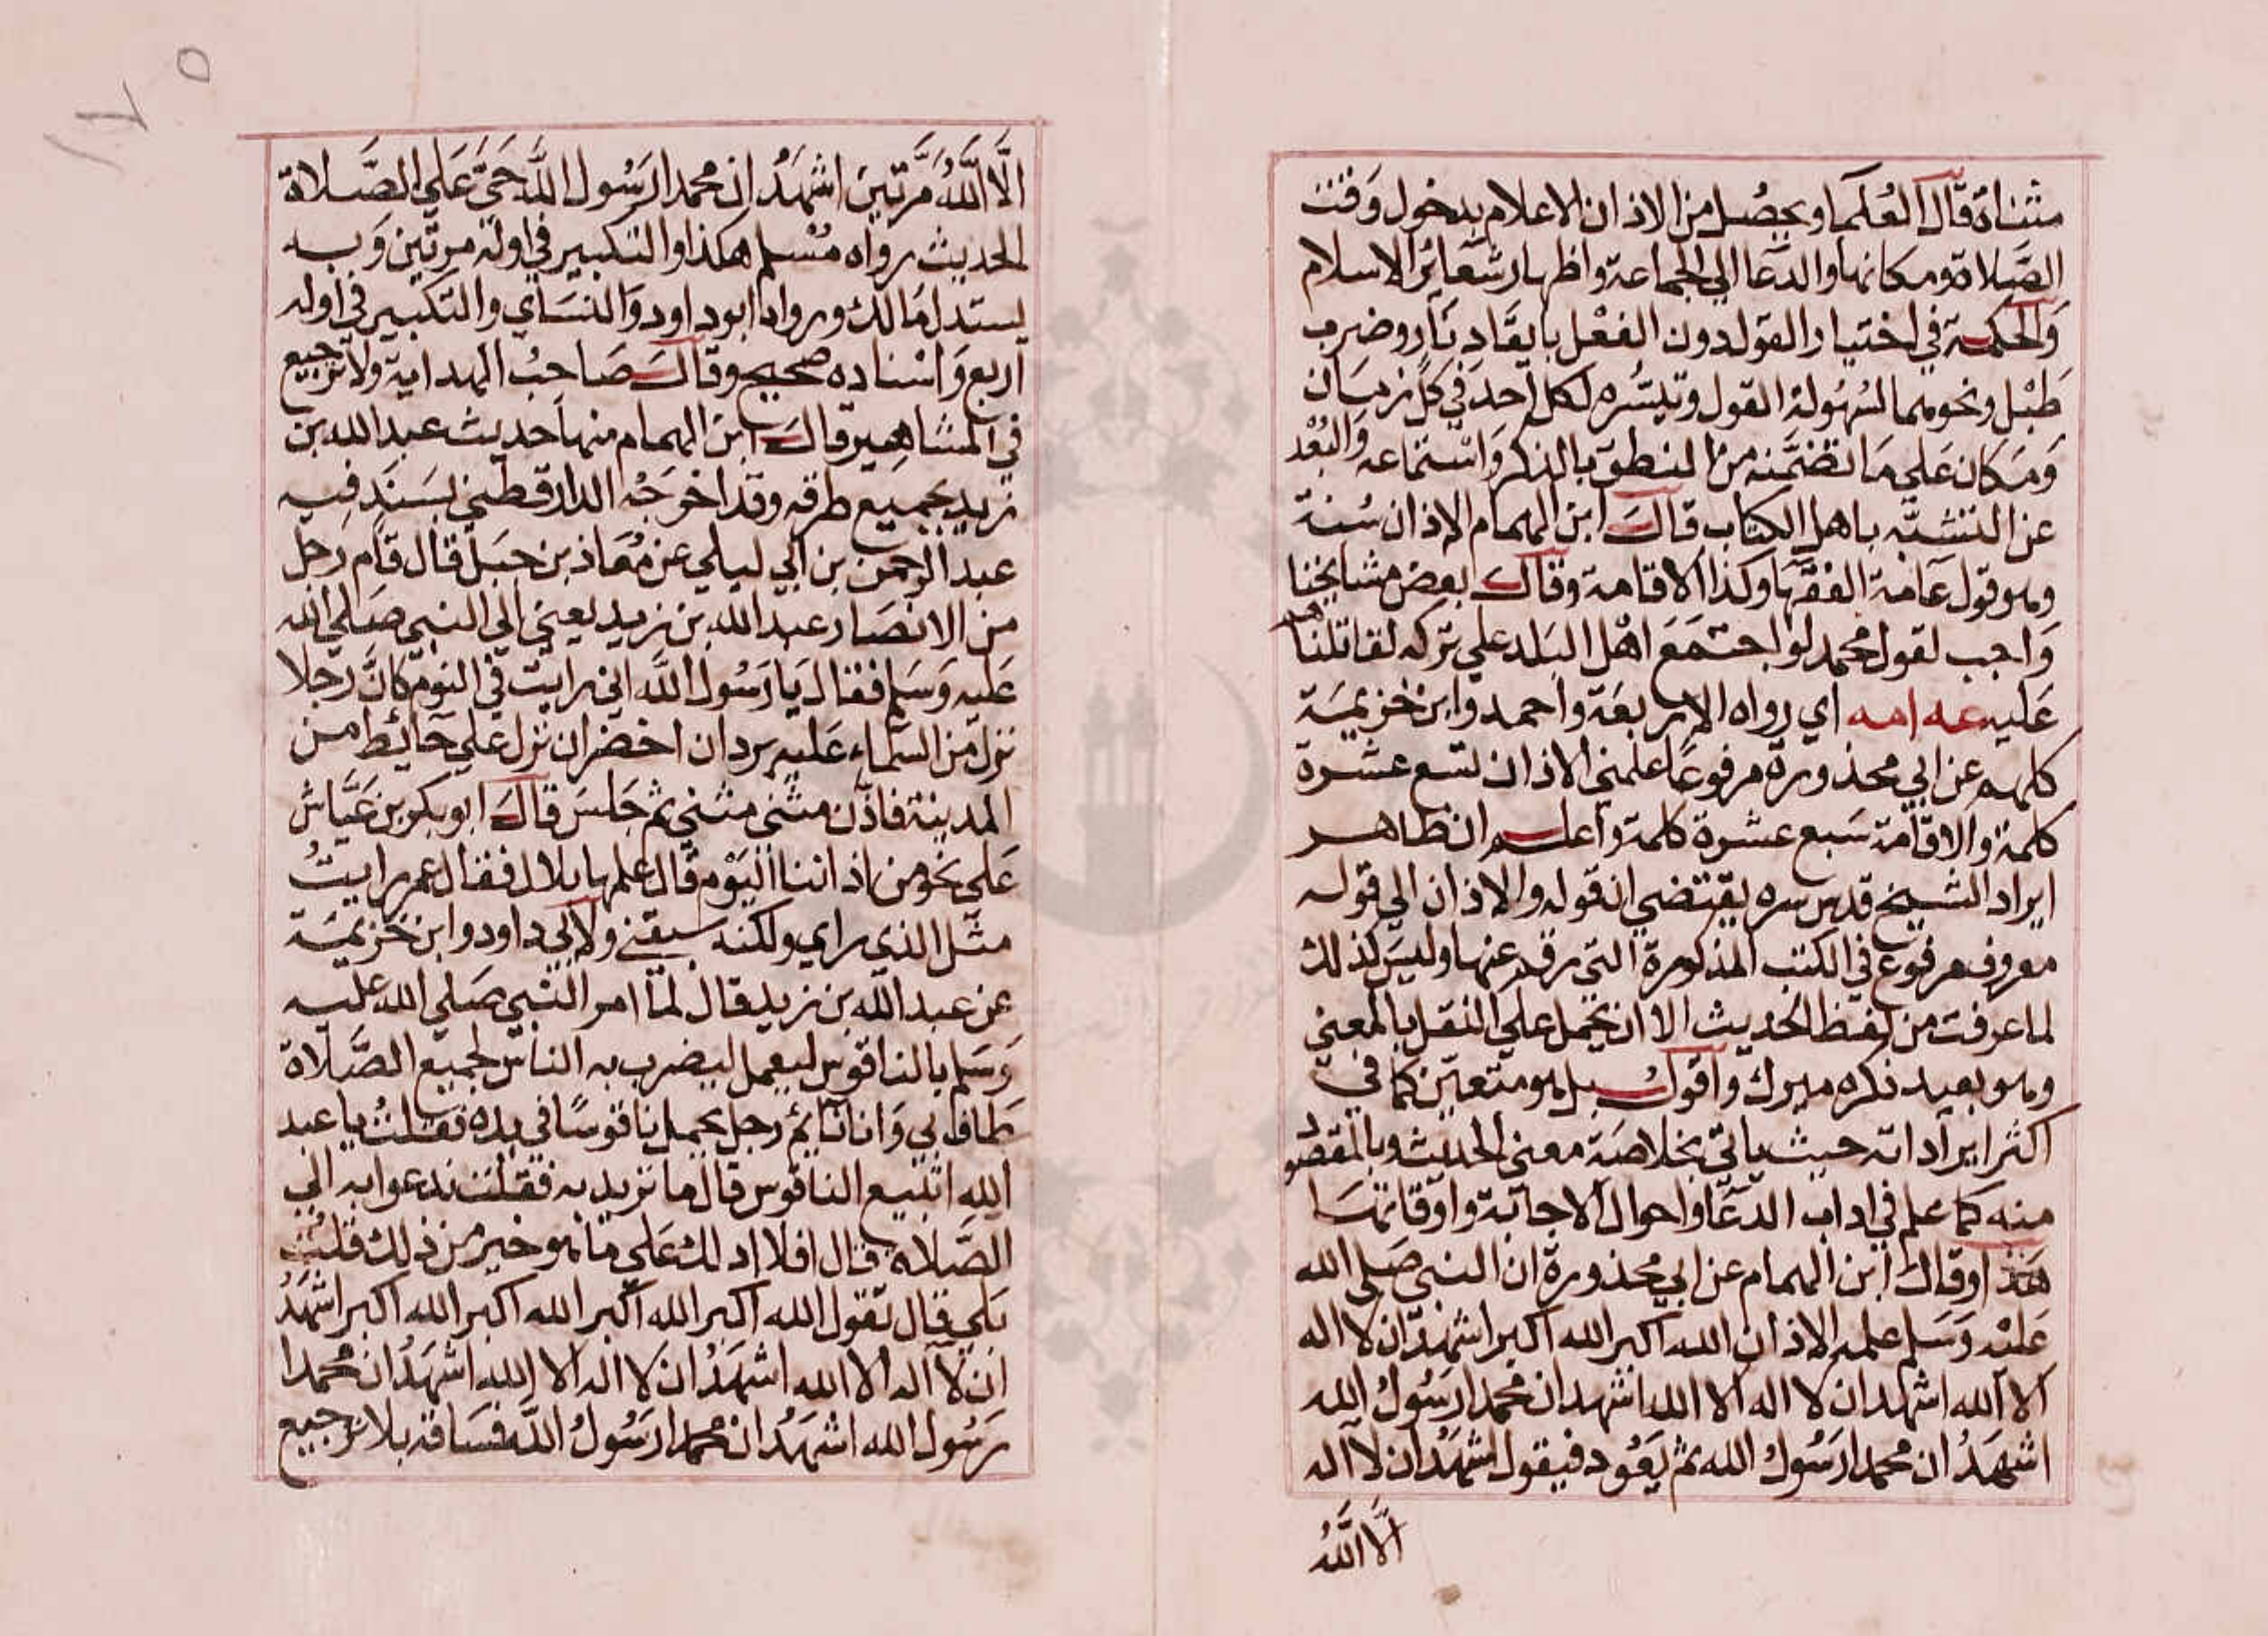 مثناة قال العلما ويحصل من الاذان الاعلام بدخول وقت
الصلاة ومكانها والدعا الي الجماعة واظهار شعائر الاسلام
والحكمة في اختيار القول دون الفعل بايقاد نار وضرب
طبل ونحوهما لسهولة القول وتيسره لكل احد في كل زمان
ومكان علي ما تضمنه من النطق بالذكر واستماعه والبعد
عن التشبه باهل الكتاب قال ابن الهمام الاذان سنة
وهو قول عامة الفقها وكذا الاقامة وقال بعض مشايخنا
واجب لقول محمد لو اجتمع اهل البلد علي تركه لقاتلناهم
عليه عه امه اي رواه الاربعة واحمد وابن خزيمة
كلهم عن ابي محذورة مرفوعا علمني الاذان تسع عشرة
كلمة والاقامة سبع عشرة كلمة واعلم ان ظاهر
ايراد الشيخ قدس سره يقتضي ان قوله والاذان الي قوله
معروف مرفوع في الكتب المذكورة التي رقم عنها وليس كذلك
لما عرفت من لفظ الحديث الا ان يحمل علي النقل بالمعني
وهو بعيد ذكره ميرك واقول بل هو متعين كما في
اكثر ايراداته حيث ياتي بخلاصة معني الحديث وبالمقصود
منه كما علم في اداب الدعا واحوال الاجابة واوقاتها
هذا وقال ابن الهمام عن ابي محذورة ان النبي صلي الله
عليه وسلم علمه الاذان الله اكبر الله اكبر اشهد ان لا اله
الا الله اشهد ان لا اله الا الله اشهد ان محمدا رسول الله
اشهد ان محمدا رسول الله ثم يعود فيقول اشهد ان لا اله
الا الله
١٧٥
الا الله مرتين اشهد ان محمدا رسول الله حي علي الصلاة
الحديث رواه مسلم هكذا والتكبير في اوله مرتين وبه
يستدل مالك ورواه ابو داود والنساي والتكبير في اوله
اربع واسناده صحيح وقال صاحب الهداية ولا ترجيع
في المشاهير قال ابن الهمام منها حديث عبد الله بن
زيد بجميع طرقه وقد اخرجه الدارقطني بسند فيه
عبد الرحمن بن ابي ليلي عن معاذ بن جبل قال قام رجل
من الانصار عبد الله بن زيد يعني الي النبي صلي الله
عليه وسلم فقال يا رسول الله اني رايت في النوم كان رجلا
نزل من السماء عليه بردان اخضران نزل علي حائط من
المدينة فاذن مثني مثني ثم جلس قال ابو بكر بن عياش
علي نحو من اذاننا اليوم قال علمها بلال فقال عمر رايت
مثل الذي راي ولكنه سبقني ولابي داود وابن خزيمة
عن عبد الله بن زيد قال لما امر النبي صلي الله عليه
وسلم بالناقوس ليعمل ليضرب به الناس لجميع الصلاة
طاف بي وانا نائم رجل يحمل ناقوسا في يده فقلت يا عبد
الله اتبيع الناقوس قال ما تريد به فقلت ندعوا به الي
الصلاة قال افلا ادلك علي ما هو خير من ذلك قلت
بلي قال تقول الله اكبر الله اكبر الله اكبر الله اكبر اشهد
ان لا اله الا الله اشهد ان لا اله الا الله اشهد ان محمدا
رسول الله اشهد ان محمدا رسول الله فساقه بلا ترجيع